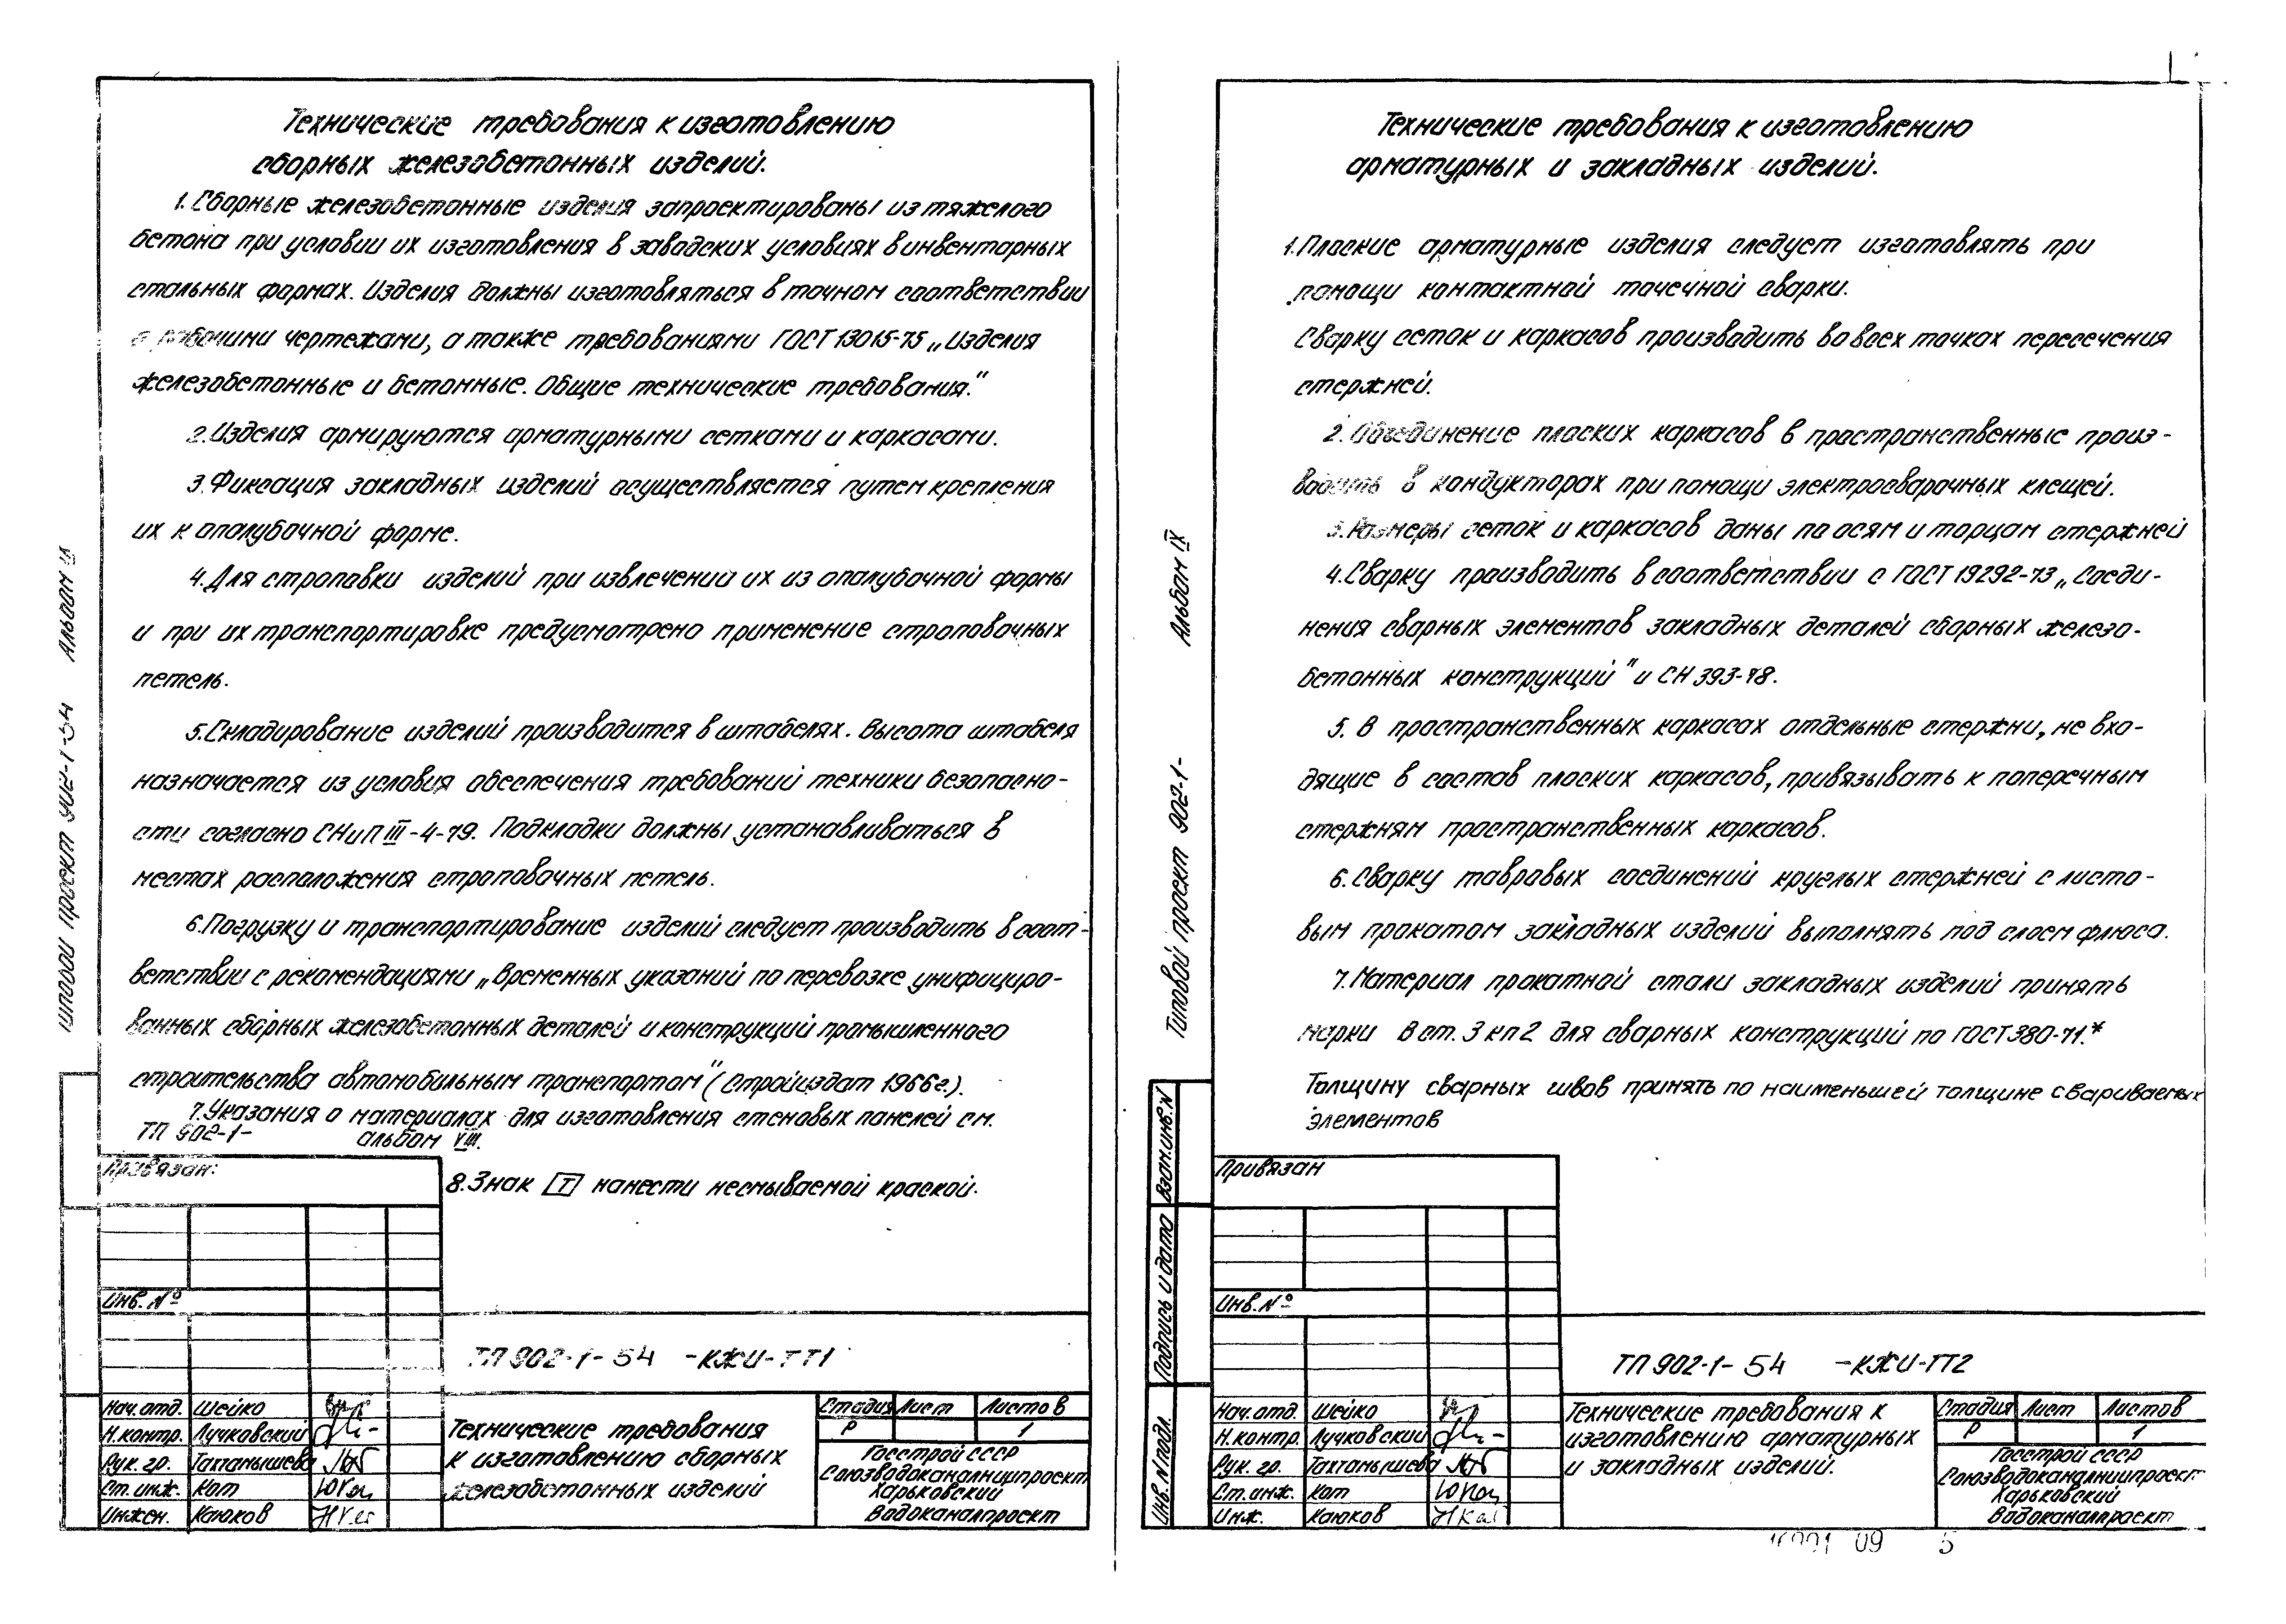 Технические требования к изготовлению
сборных железобетонных изделий.
1. Сборные железобетонные изделия запроектированы из тяжелого
бетона при условии их изготовления в заводских условиях в инвентарных
стальных формах. Изделия должны изготовляться в точном соответствии
с рабочими чертежами, а также требованиями ГОСТ 13015-75 „Изделия
железобетонные и бетонные. Общие технические требования."
2. Изделия армируются арматурными сетками и каркасами.
3. Фиксация закладных изделий осуществляется путем крепления
их к опалубочной форме.
4. Для строповки изделий при извлечении их из опалубочной формы
и при их транспортировке предусмотрено применение строповочных
петель.
5. Складирование изделий производится в штабелях. Высота штабеля
назначается из условия обеспечения требований техники безопасно-
сти согласно СНиП III-4-79. Подкладки должны устанавливаться в
местах расположения строповочных петель.
6. Погрузку и транспортирование изделий следует производить в соот-
ветствии с рекомендациями „Временных указаний по перевозке унифициро-
ванных сборных железобетонных деталей и конструкций промышленного
строительства автомобильным транспортом" (Стройиздат 1966г.).
7. Указания о материалах для изготовления стеновых панелей см.
ТП 902-1- альбом VIII.
8. Знак Т нанести несмываемой краской.
Привязан:
Инв. №
ТП 902-1-54 -КЖИ-ТТ1
Нач. отд. Шейко
Н. контр. Лучковский
Рук. гр. Тахтамышева
Ст. инж. Кот
Инжен. Каюков
Технические требования
к изготовлению сборных
железобетонных изделий
Стадия Лист Листов
Р 1
Госстрой СССР
Союзводоканалниипроект
Харьковский
Водоканалпроект
Типовой проект 902-1-54 Альбом IX
Технические требования к изготовлению
арматурных и закладных изделий.
1. Плоские арматурные изделия следует изготовлять при
помощи контактной точечной сварки.
Сварку сеток и каркасов производить во всех точках пересечения
стержней.
2. Объединение плоских каркасов в пространственные произ-
водить в кондукторах при помощи электросварочных клещей.
3. Размеры сеток и каркасов даны по осям и торцам стержней
4. Сварку производить в соответствии с ГОСТ 19292-73 „Соеди-
нения сварных элементов закладных деталей сборных железо-
бетонных конструкций" и СН 393-78.
5. В пространственных каркасах отдельные стержни, не вхо-
дящие в состав плоских каркасов, привязывать к поперечным
стержням пространственных каркасов.
6. Сварку тавровых соединений круглых стержней с листо-
вым прокатом закладных изделий выполнять под слоем флюса.
7. Материал прокатной стали закладных изделий принять
марки В ст. 3 кп 2 для сварных конструкций по ГОСТ 380-71.*
Толщину сварных швов принять по наименьшей толщине свариваемых
элементов
Привязан
Инв. №
ТП 902-1-54 -КЖИ-ТТ2
Нач. отд. Шейко
Н. контр. Лучковский
Рук. гр. Тахтамышева
Ст. инж. Кот
Инж. Каюков
Технические требования к
изготовлению арматурных
и закладных изделий.
Стадия Лист Листов
Р 1
Госстрой СССР
Союзводоканалниипроект
Харьковский
Водоканалпроект
Типовой проект 902-1- Альбом IX
Взам. инв. N
Подпись и дата
Инв. N подл.
09 5